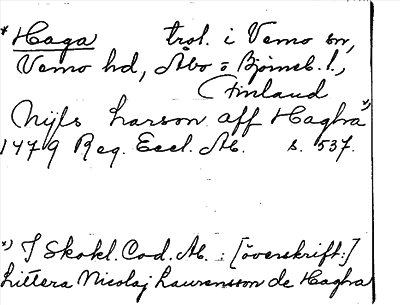 * Haga trol. i Vemo sn,
Vemo hd, Åbo = Björneb. l.,
Finland
Nijls Larson aff Haghra *)
1479 Reg. Eccl. Ab. s. 537.
*) I Skokl. Cod. Ab. : [överskrift:]
Littera Nicolaj Laurensson de Haghra